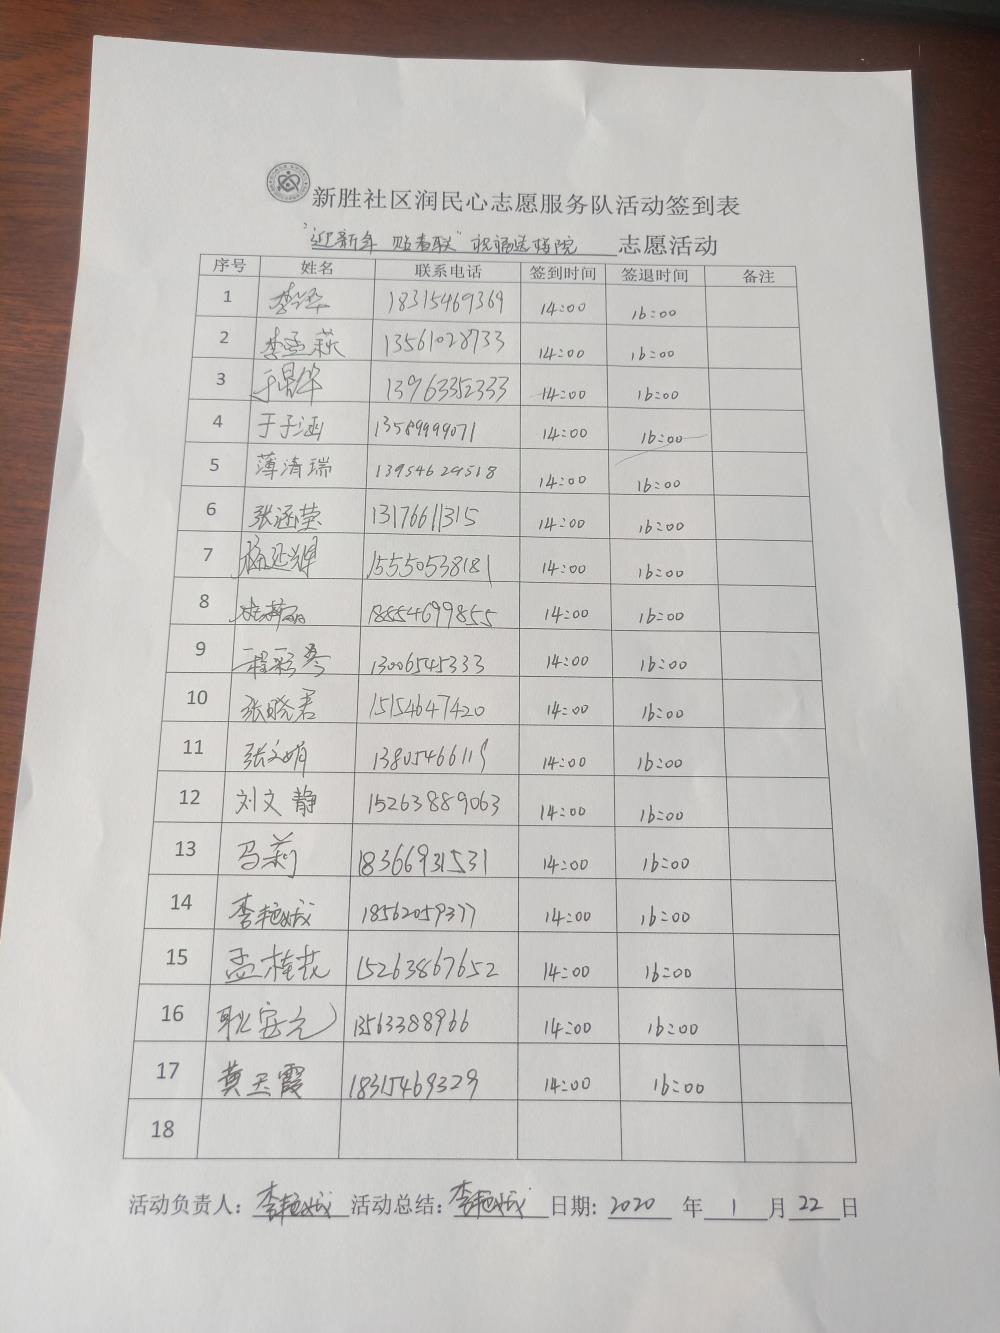 新胜社区润民心志愿服务队活动签到表
"迎新年 贴春联"祝福送福院 志愿活动
序号 姓名 联系电话 签到时间 签退时间 备注
1 18315469369 14:00 16:00
2 李孟萩 13561028733 14:00 16:00
3 于晨华 13963352333 14:00 16:00
4 于子涵 13589999071 14:00 16:00
5 薄清瑞 13954629518 14:00 16:00
6 张涵莹 13176611315 14:00 16:00
7 15550538181 14:00 16:00
8 18554699855 14:00 16:00
9 程彩琴 13006545333 14:00 16:00
10 张晓君 15154647420 14:00 16:00
11 张文娟 14:00 16:00
12 刘文静 15263889063 14:00 16:00
13 马莉 18366931531 14:00 16:00
14 李艳娥 18562059377 14:00 16:00
15 孟桂花 15263867652 14:00 16:00
16 13563388966 14:00 16:00
17 黄玉霞 18315469329 14:00 16:00
18
活动负责人: 李艳娥 活动总结: 李艳娥 日期: 2020 年 1 月 22 日